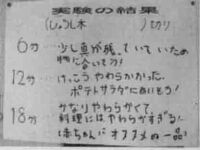 実験の結果
(しょうじ木　　　)切り
6分　少し直が残っていていため
物に合いそう!
12分　けっこうやわらかかった。
ポテトサラダにあいそう!
18分　かなりやわらかくて、
料理にはやわらかすぎる!
赤ちゃんにオススメの一品